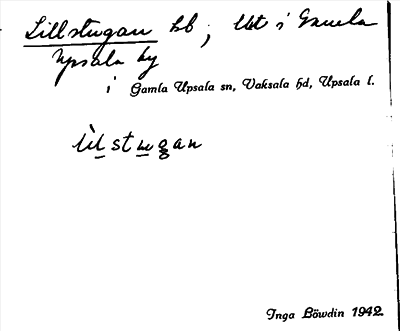 Lillstugan hb; Utt i Gamla
Upsala by
i Gamla Upsala sn, Vaksala hd, Upsala l.
stugan
Inga Böwdin 1942.